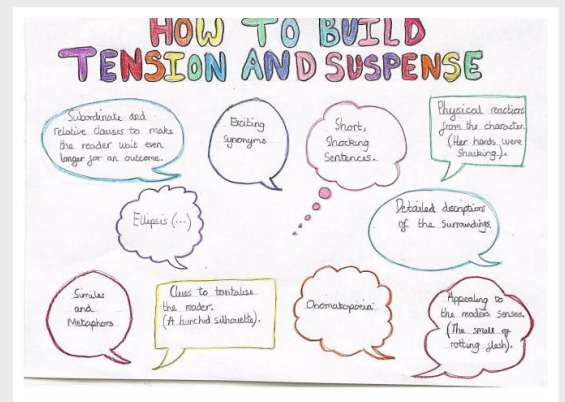 HOW TO BUILD
TENSION AND SUSPENSE
Subordinate and
relative clauses to make
the reader wait even
longer for an outcome.
Exciting
synonyms
Short,
Shocking
Sentences.
Physical reactions
from the character.
(Her hands were
shacking).
Ellipsis (...)
Detailed descriptions
of the surroundings.
Similes
and
Metaphors
Clues to tantalise
the reader.
(A hunchid silhouette).
Onomatopoeia
Appealing to
the readers senses.
(The smell of
rotting flesh).